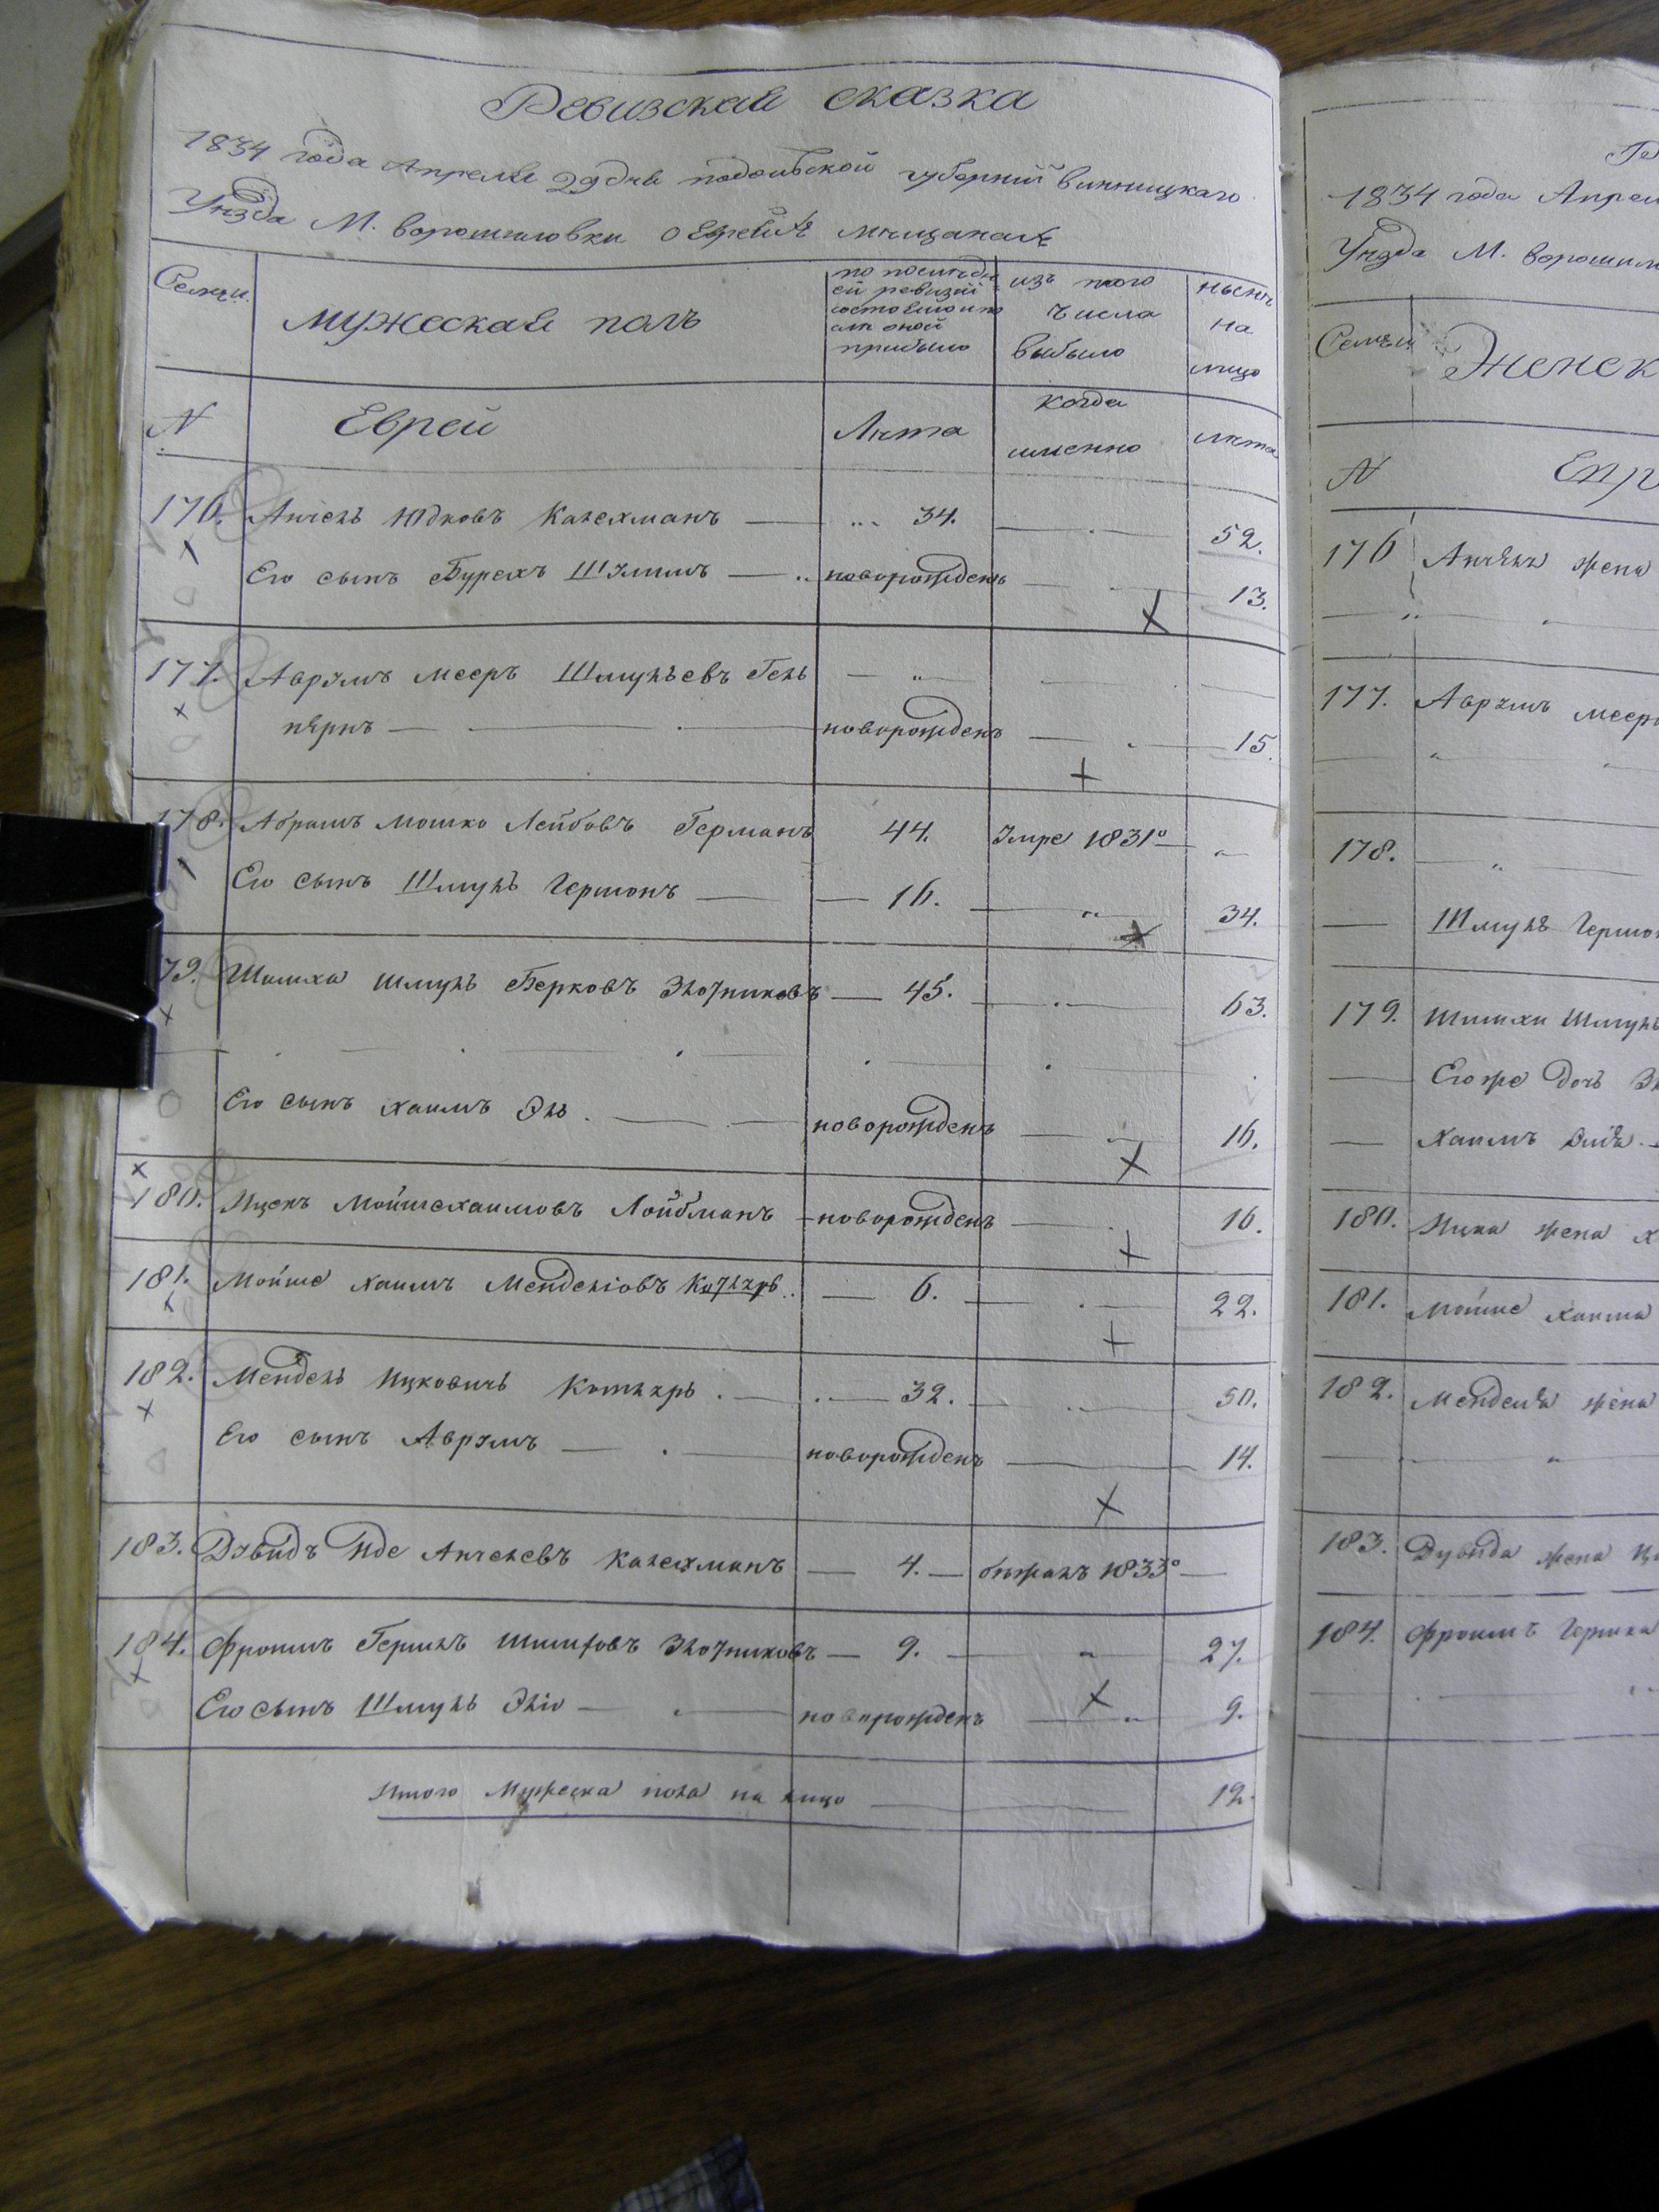 Ревизская сказка
1834 года Апреля 29 дня подольской губернии винницкаго
Уѣзда М. ворошиловки о Евреяхъ мѣщанахъ
Семьи
мужеская полъ
по последн
ей ревизіи
состояло и по
слѣ оной
прибыло
изъ того
числа
выбыло
нынѣ
на
лицо
N
Еврей
Лѣта
когда
именно
лѣта
176. Анчель Юдковъ Калехманъ — 34. — 52.
Его сынъ Бурехъ Шулимъ — новорожденъ — 13.
177. Аврумъ Мееръ Шмульевъ Гель
пернъ — новорожденъ — 15
178. Абрамъ Мошко Лейбовъ Германъ 44. Умре 1831º —
Его сынъ Шмуль Гершонъ — 16. — 34.
79. Шлиха Шмуль Берковъ Злотниковъ — 45. — 63.
Его сынъ Хаимъ Эль. — новорожденъ — 16.
180. Ицекъ Мойшехаимовъ Лойбманъ — новорожденъ — 16.
181. Мойше Хаимъ Менделіовъ Котляръ — 6. — 22.
182. Мендель Ицковичь Котляръ. — 32. — 50.
Его сынъ Аврумъ — новорожденъ — 14.
183. Дувидъ Иде Анчелевъ Калехманъ — 4. — бѣжалъ 1833º —
184. Фроимъ Гершъ Злотниковъ — 9. — 27.
Его сынъ Шмуль Эліо — новорожденъ — 9.
Итого Мужеска пола на лицо — 12.
1834 года Апрел
Уѣзда М. ворошил
Семьи
Женск
N
Евр
176 Анчеля жена
177. Аврумъ Меера
178.
Шмуля Гершо
179. Шлихи Шмуль
Его же дочь
Хаимъ Эля. —
180. Ицка жена Х
181. Мойше Хаима
182. Менделя жена
183. Дувида жена
184. Фроимъ Гершка